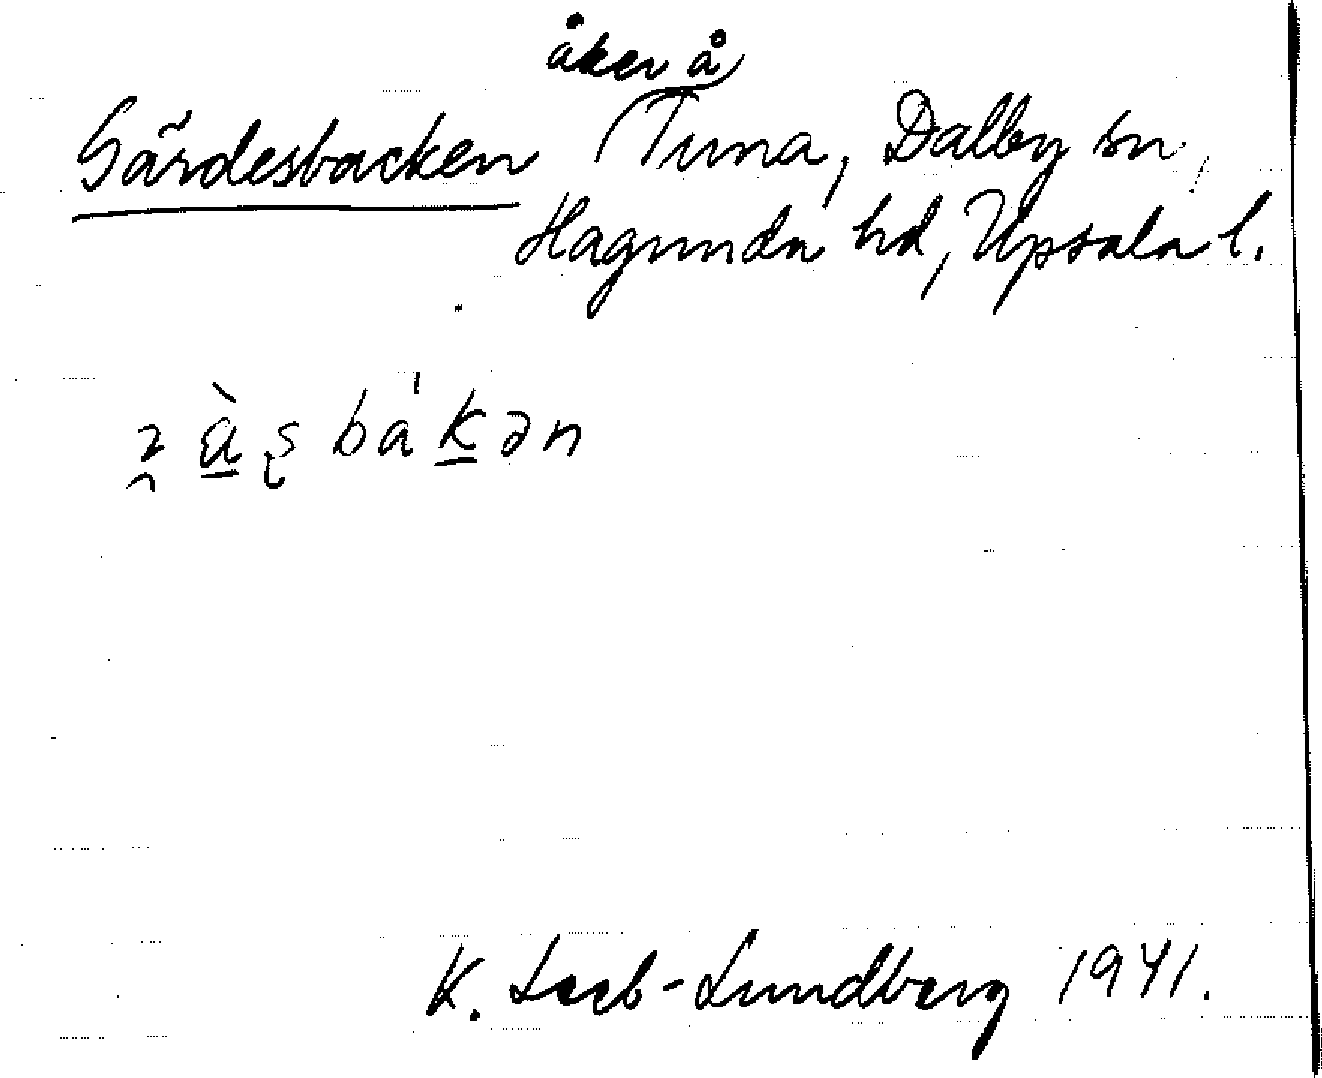 åker å
Gärdesbacken Tuna, Dalby sn,
Hagunda hd, Upsala l.
bákən
K. Leeb-Lundberg 1941.